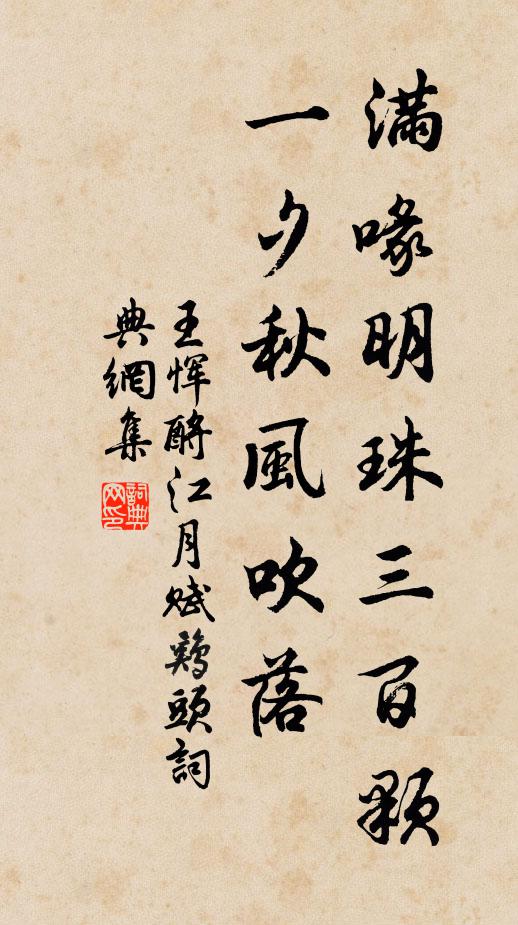 滿喙明珠三百顆
一夕秋風吹落
王惲酹江月賦鷄頭詞
典網集
詞典網印